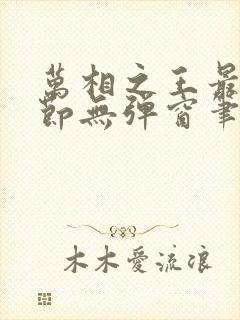 萬相之王最
節無彈窗筆
木木愛流浪